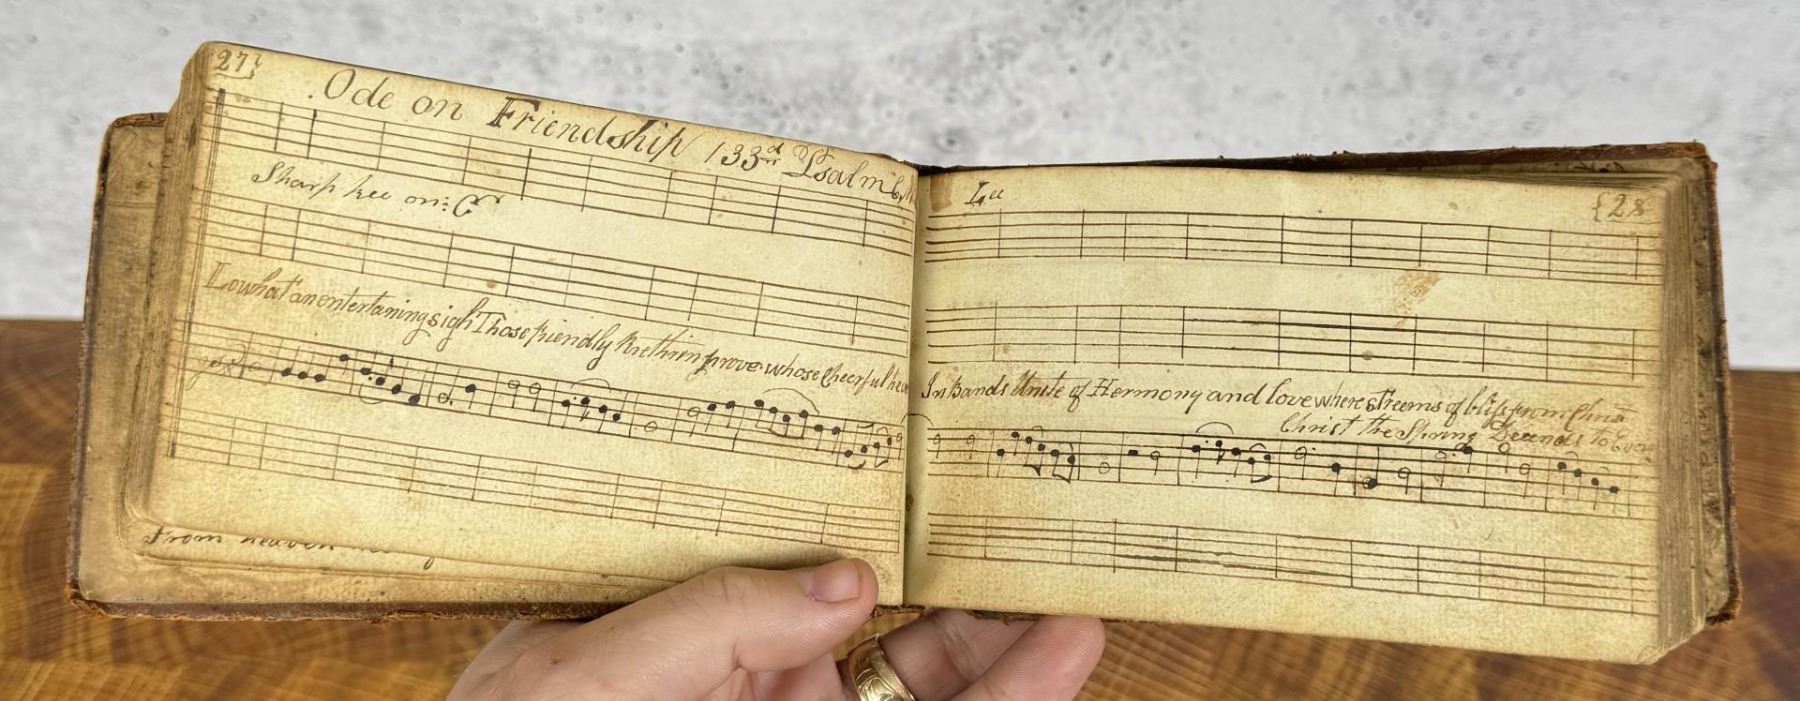 27}
Ode on Friendship 133rd Psalm by M
Sharp kee on: C
Lo what an entertaining sigh Those friendly Brethrin prove whose Cheerful hear
From heaven
Lee
{28
In Bands Unite of Hermony and love where streems of bliss from Christ
Christ the Spring Decends to Ever